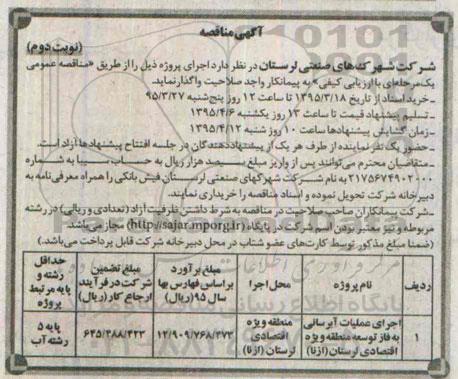 آگهی مناقصه
(نوبت دوم)
شرکت شهرک‌های صنعتی لرستان در نظر دارد اجرای پروژه ذیل را از طریق «مناقصه عمومی
یک مرحله‌ای با ارزیابی کیفی» به پیمانکار واجد صلاحیت واگذار نماید.
-خرید اسناد از تاریخ ۱۳۹۵/۳/۱۸ تا ساعت ۱۲ روز پنج‌شنبه ۹۵/۳/۲۷
-تسلیم پیشنهاد قیمت تا ساعت ۱۳ روز یکشنبه ۱۳۹۵/۴/۶
-زمان گشایش پیشنهادها ساعت ۱۰ روز شنبه ۱۳۹۵/۴/۱۲
-حضور یک نفر نماینده از طرف هر یک از پیشنهاددهندگان در جلسه افتتاح پیشنهادها آزاد است.
-متقاضیان محترم می‌توانند پس از واریز مبلغ هزار ریال به حساب سیبا به شماره
۲۱۷۵۶۷۴۹۰۲۰۰۰ به نام شرکت شهرکهای صنعتی لرستان فیش بانکی را همراه معرفی‌نامه به
دبیرخانه شرکت تحویل نموده و اسناد مناقصه را خریداری نمایند.
-شرکت پیمانکاران صاحب صلاحیت در مناقصه به شرط داشتن ظرفیت آزاد (تعدادی و ریالی) در رشته
مربوطه و نیز معتبر بودن اسم شرکت در پایگاه (http://sajar.mporg.ir) مجاز می‌باشد.
(ضمنا مبلغ مذکور توسط کارت‌های عضو شتاب در محل دبیرخانه شرکت قابل پرداخت می‌باشد.)
ردیف
نام پروژه
محل اجرا
مبلغ برآورد
براساس فهارس بها
سال ۹۵ (ریال)
مبلغ تضمین
شرکت در فرآیند
ارجاع کار (ریال)
حداقل
رشته و
پایه مرتبط
پروژه
۱
اجرای عملیات آبرسانی
به فاز توسعه منطقه ویژه
اقتصادی لرستان (ازنا)
منطقه ویژه
اقتصادی
لرستان (ازنا)
۱۲/۹۰۹/۷۶۸/۴۷۳
۶۴۵/۴۸۸/۴۲۳
پایه ۵
رشته آب